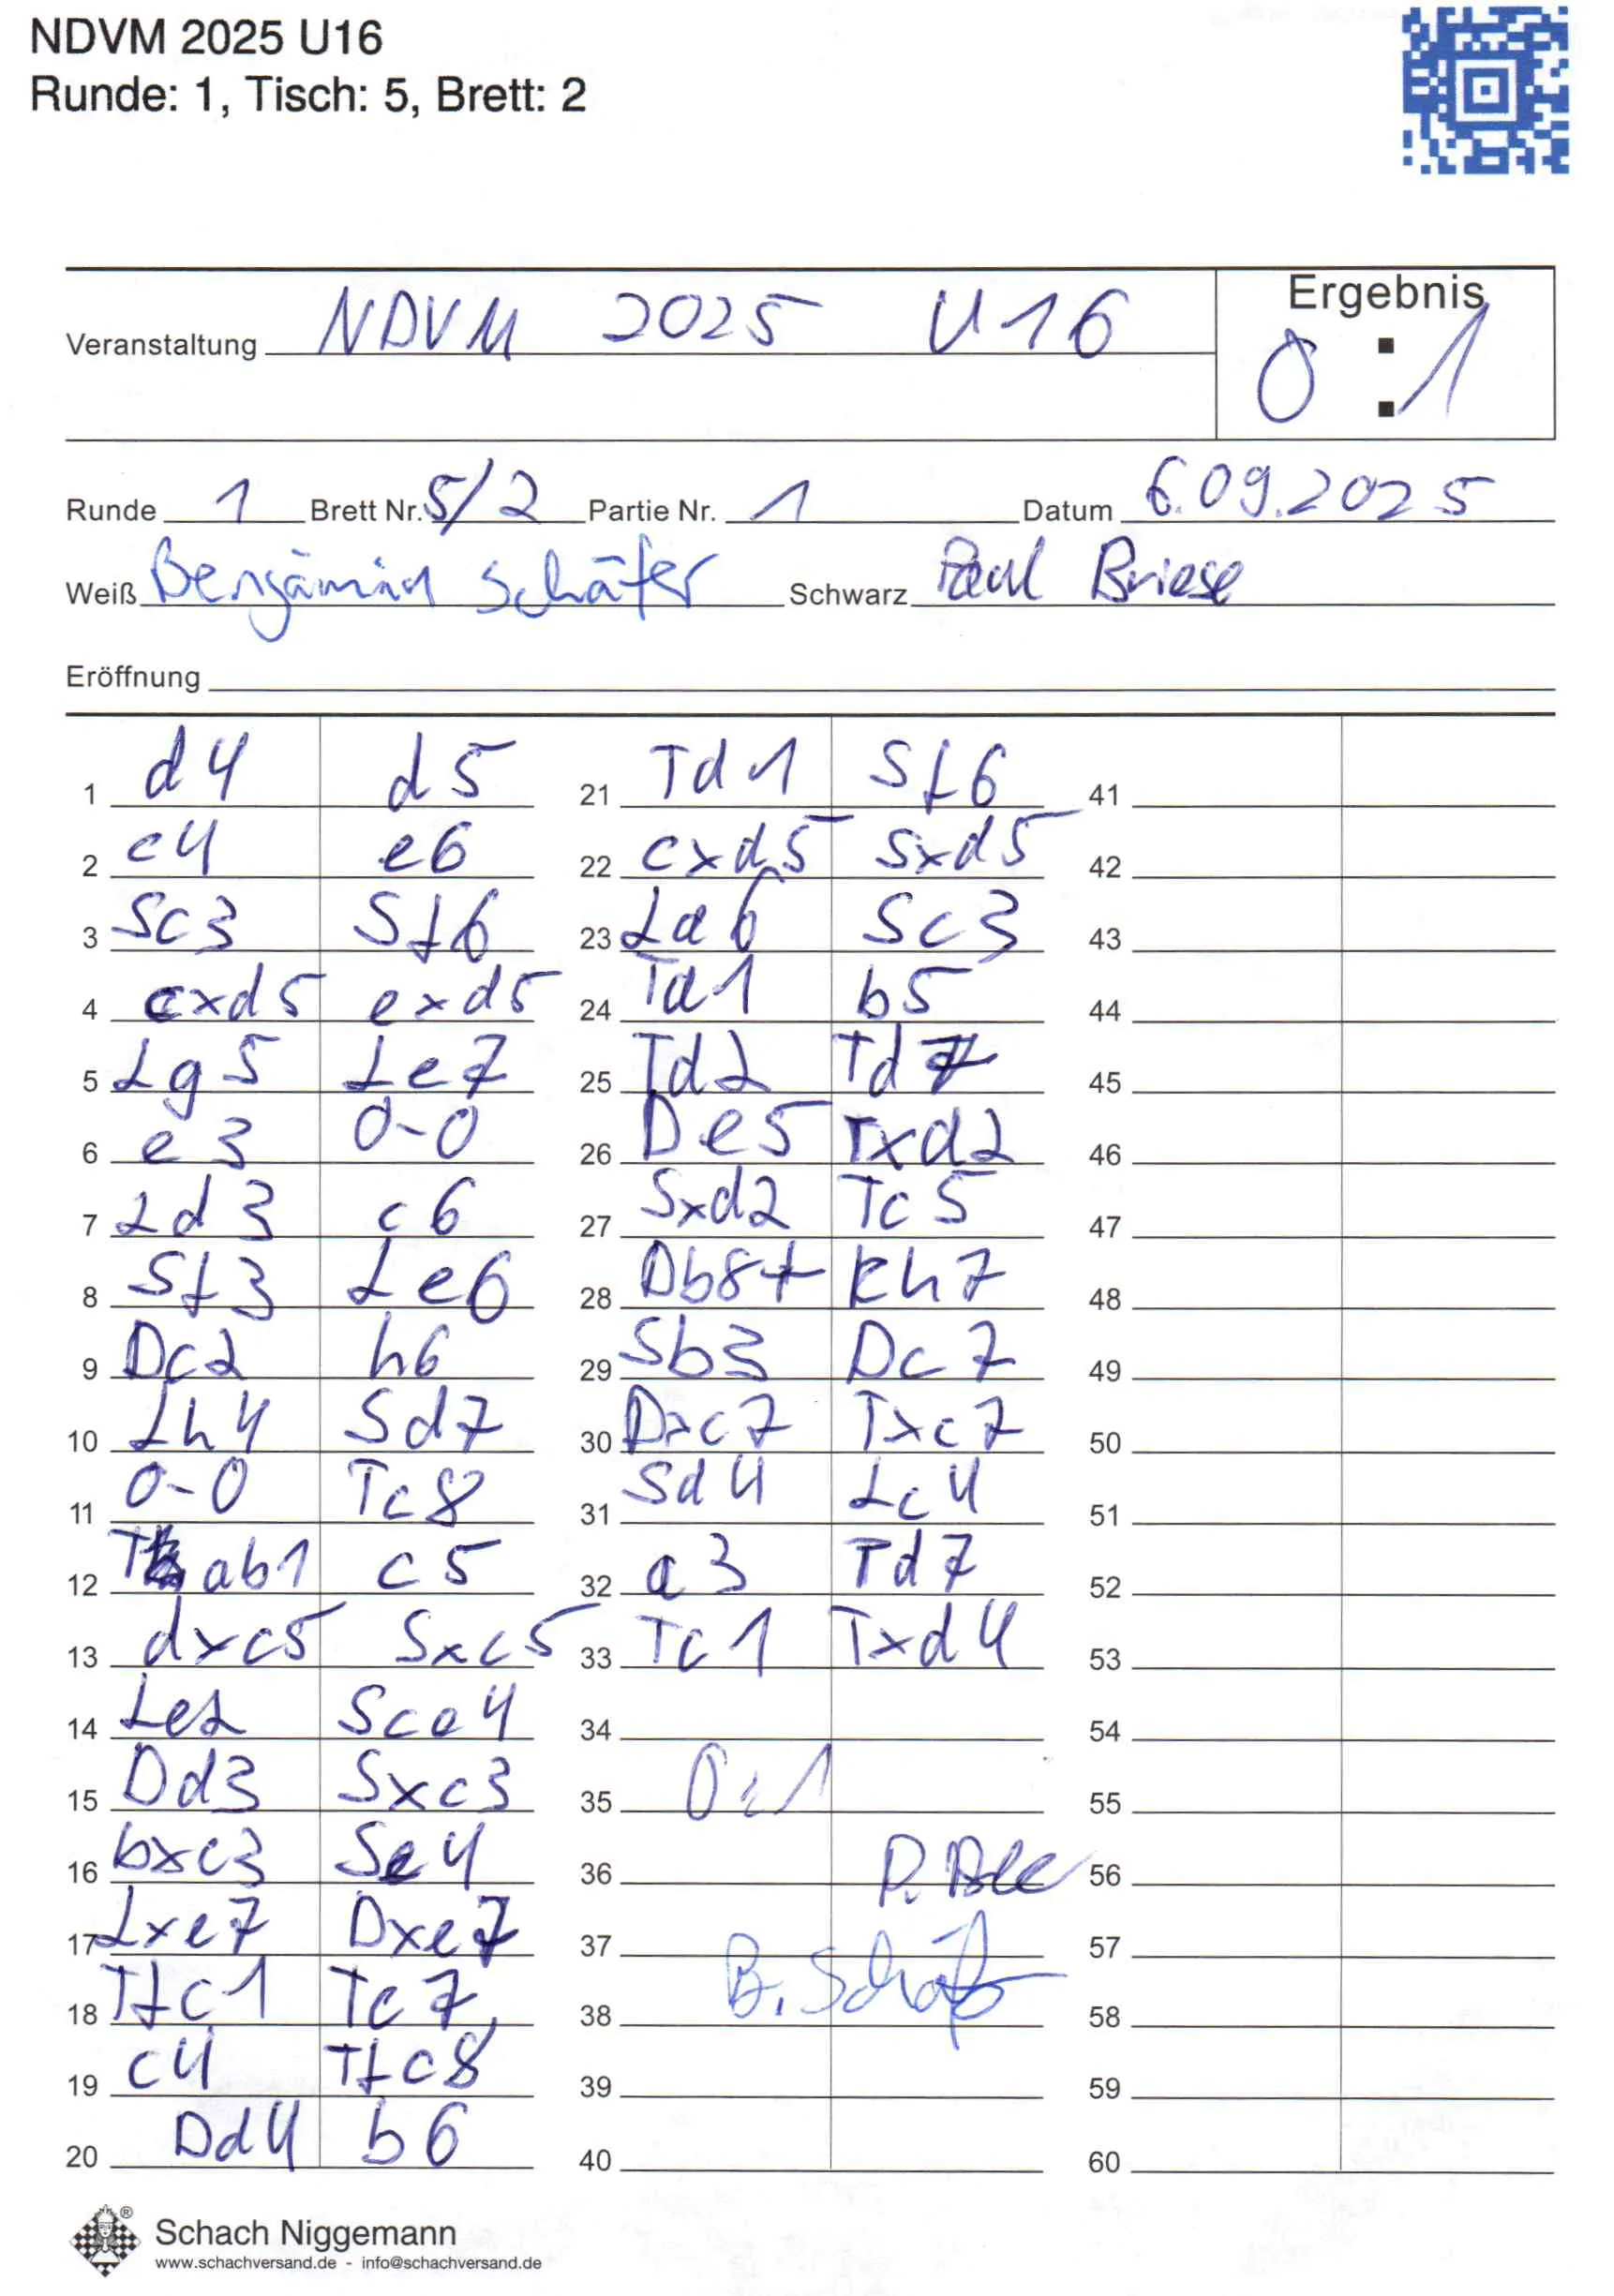 NDVM 2025 U16
Runde: 1, Tisch: 5, Brett: 2
Ergebnis
Veranstaltung NDVM 2025 U16
0 : 1
Runde 1 Brett Nr. 5/2 Partie Nr. 1 Datum 6.09.2025
Weiß Benjamin Schäfer Schwarz Paul Briese
Eröffnung
1 d4 d5 21 Td1 Sf6 41
2 c4 e6 22 cxd5 Sxd5 42
3 Sc3 Sf6 23 La6 Sc3 43
4 cxd5 exd5 24 Td1 b5 44
5 Lg5 Le7 25 Td2 Td7 45
6 e3 0-0 26 De5 Txd2 46
7 Ld3 c6 27 Sxd2 Tc5 47
8 Sf3 Le6 28 Db8+ Kh7 48
9 Dc2 h6 29 Sb3 Dc7 49
10 Lh4 Sd7 30 Dxc7 Txc7 50
11 0-0 Tc8 31 Sd4 Lc4 51
12 Tab1 c5 32 a3 Td7 52
13 dxc5 Sxc5 33 Tc1 Txd4 53
14 Le2 Sce4 34 54
15 Dd3 Sxc3 35 0:1 55
16 bxc3 Se4 36 56
17 Lxe7 Dxe7 37 B. Schäfer 57
18 Tfc1 Tc7 38 58
19 c4 Tfc8 39 59
20 Dd4 b6 40 60
Schach Niggemann
www.schachversand.de - info@schachversand.de